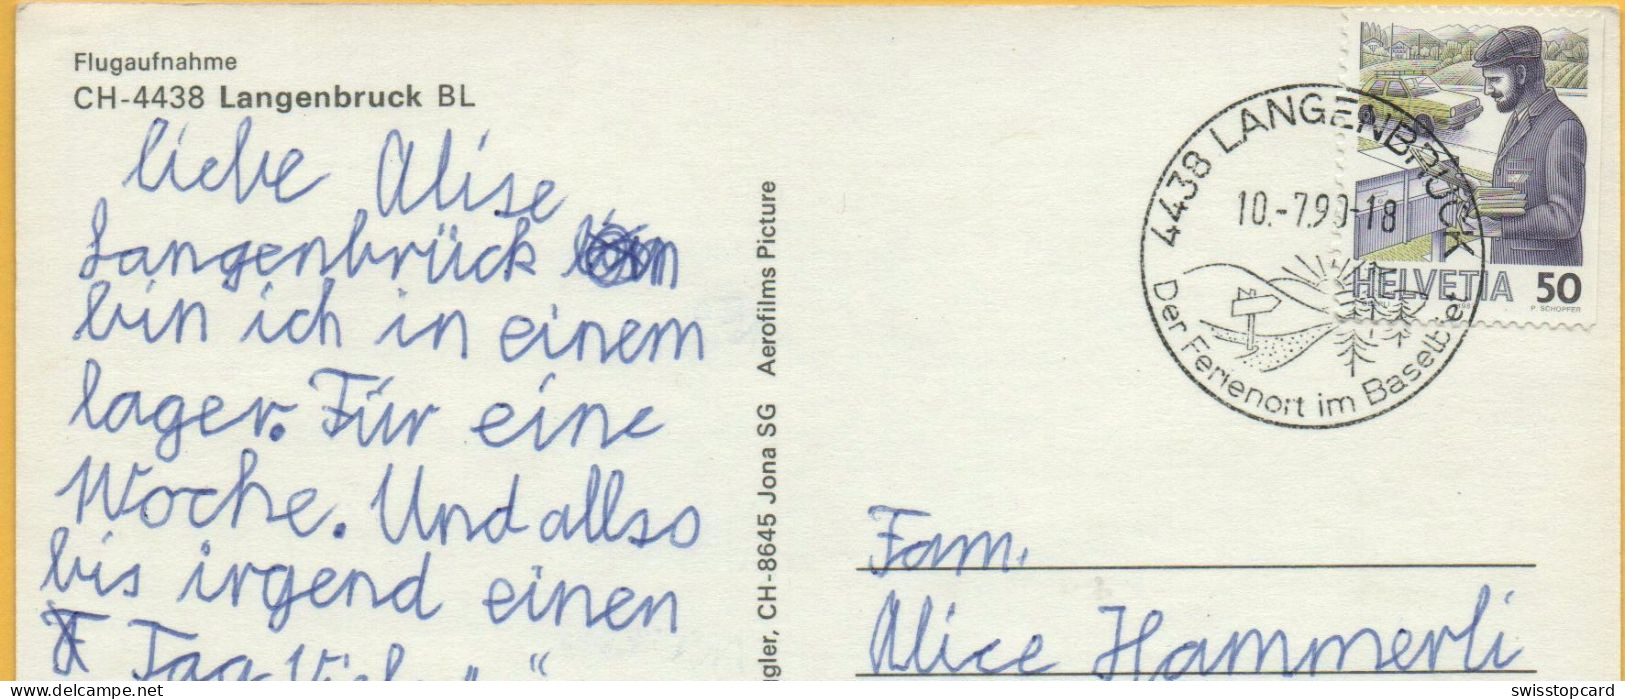 Flugaufnahme
CH-4438 Langenbruck BL
liebe Alise
Langenbrück
bin ich in einem
lager. Für eine
Woche. Und allso
bis irgend einen
Tag. Viele
CH-8645 Jona SG Aerofilms Picture
4438 LANGENBRUCK
10.-7.90-18
Der Ferienort im Baselbiet
HELVETIA 50
P. SCHOPFER
Fam.
Alice Hammerli
swisstopcard